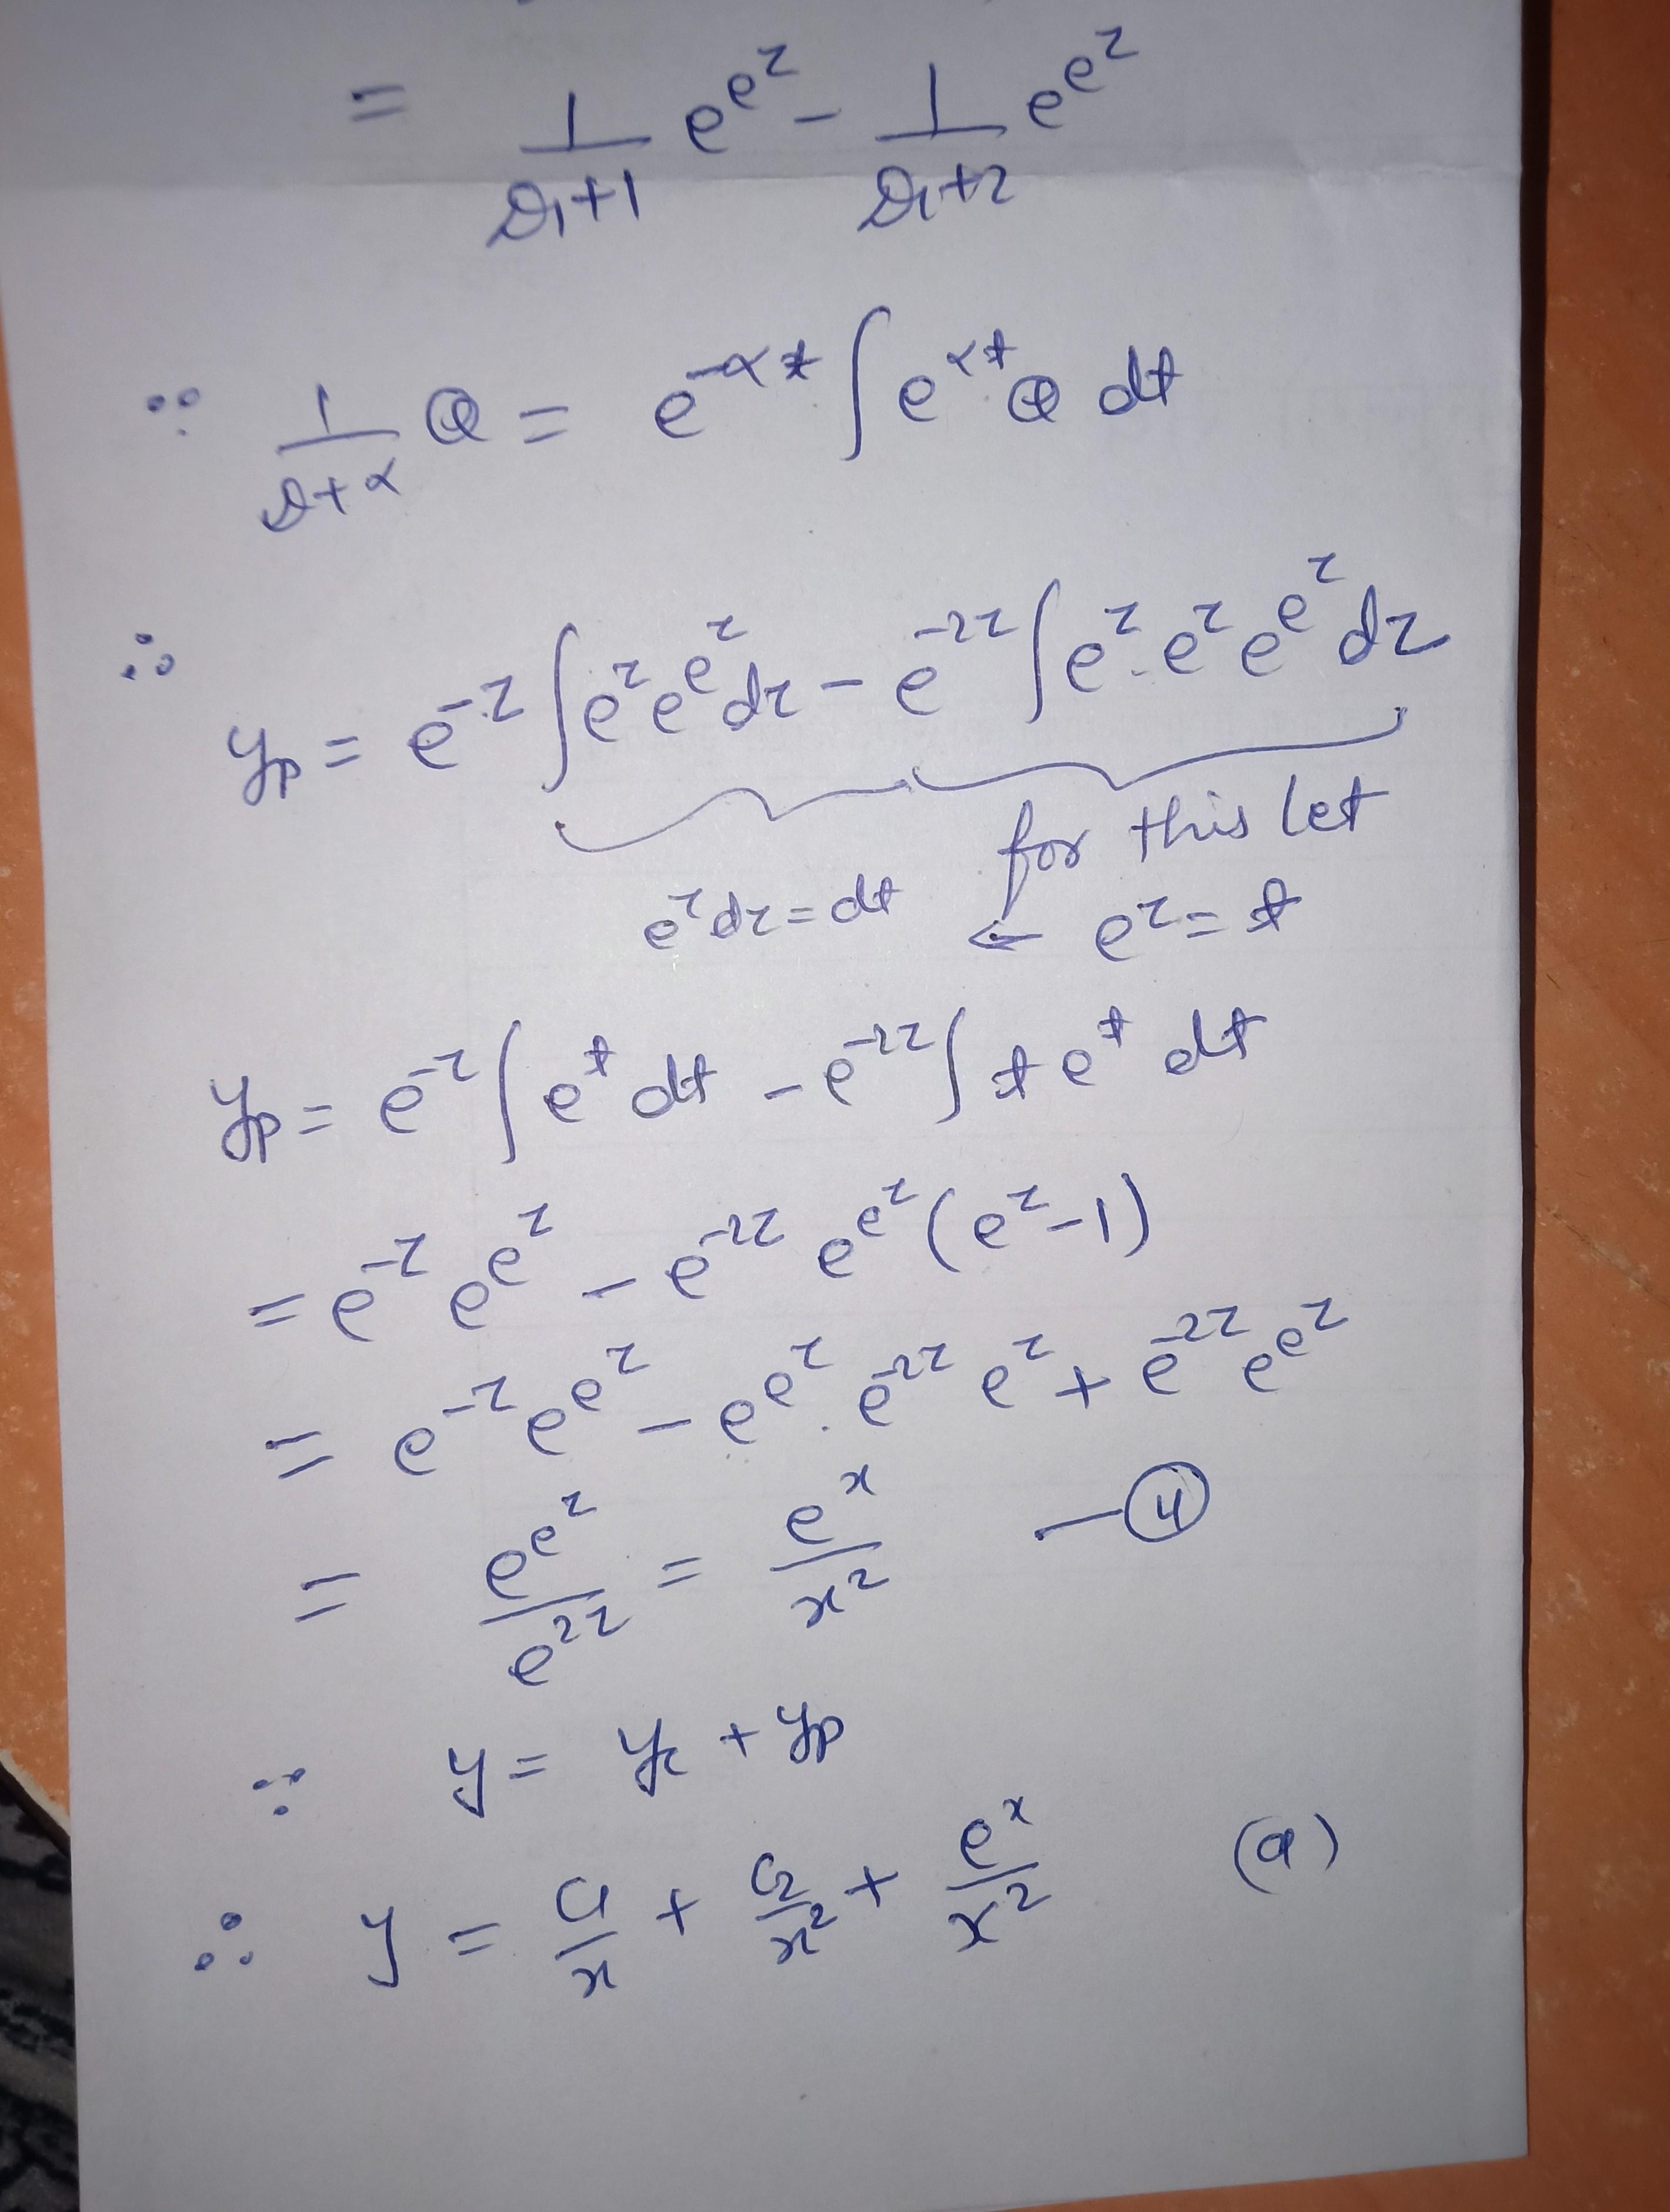 = 1/(D₁+1) e^(e^z) - 1/(D₁+2) e^(e^z)
∵ 1/(D+α) Q = e^(-αt) ∫ e^(αt) Q dt
∴ y_p = e^(-z) ∫ e^z e^(e^z) dz - e^(-2z) ∫ e^z · e^z e^(e^z) dz
for this let
e^z dz = dt ← e^z = t
y_p = e^(-z) ∫ e^t dt - e^(-2z) ∫ t e^t dt
= e^(-z) e^(e^z) - e^(-2z) e^(e^z) (e^z - 1)
= e^(-z) e^(e^z) - e^(e^z) · e^(-2z) e^z + e^(-2z) e^(e^z)
= e^(e^z)/e^(2z) = e^x/x² — ④
∵ y = y_c + y_p
∴ y = c₁/x + c₂/x² + e^x/x² (a)